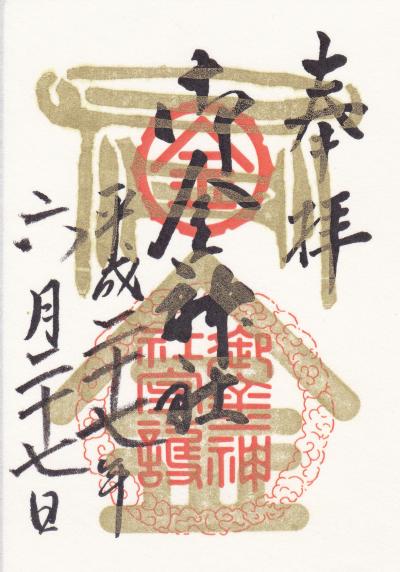 奉拝
御金神社
平成二十七年
六月二十七日
金
御金神
社守護